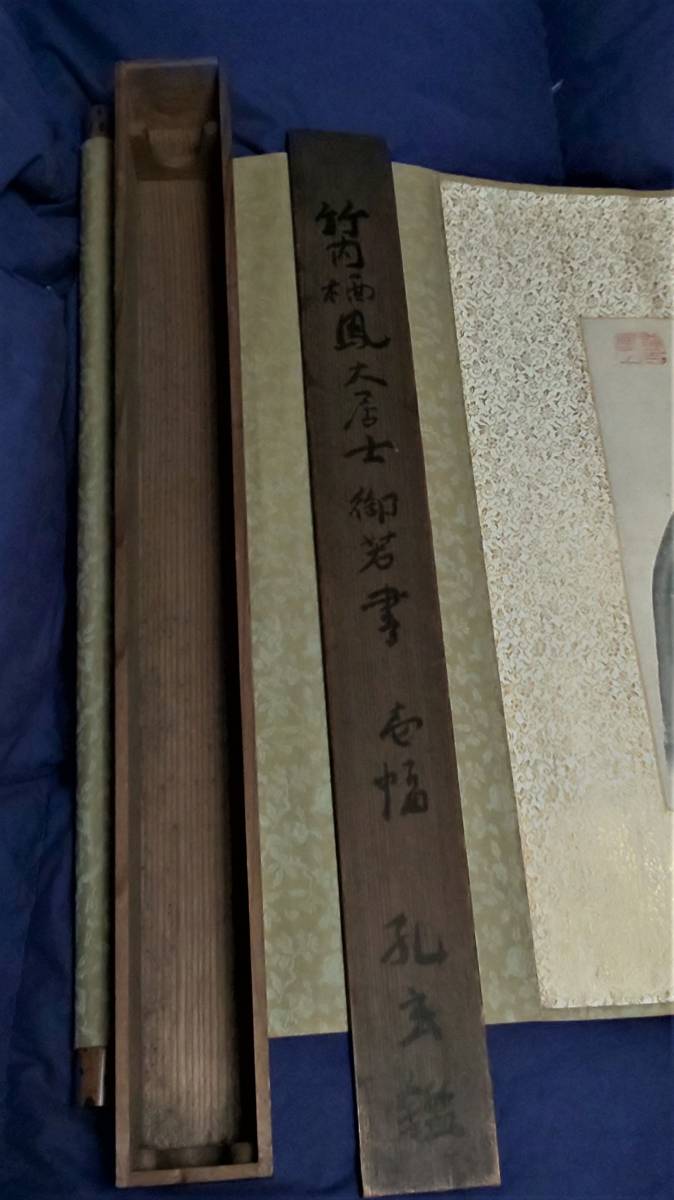 竹内栖鳳大居士御若書 壱幅 孔玄鑑